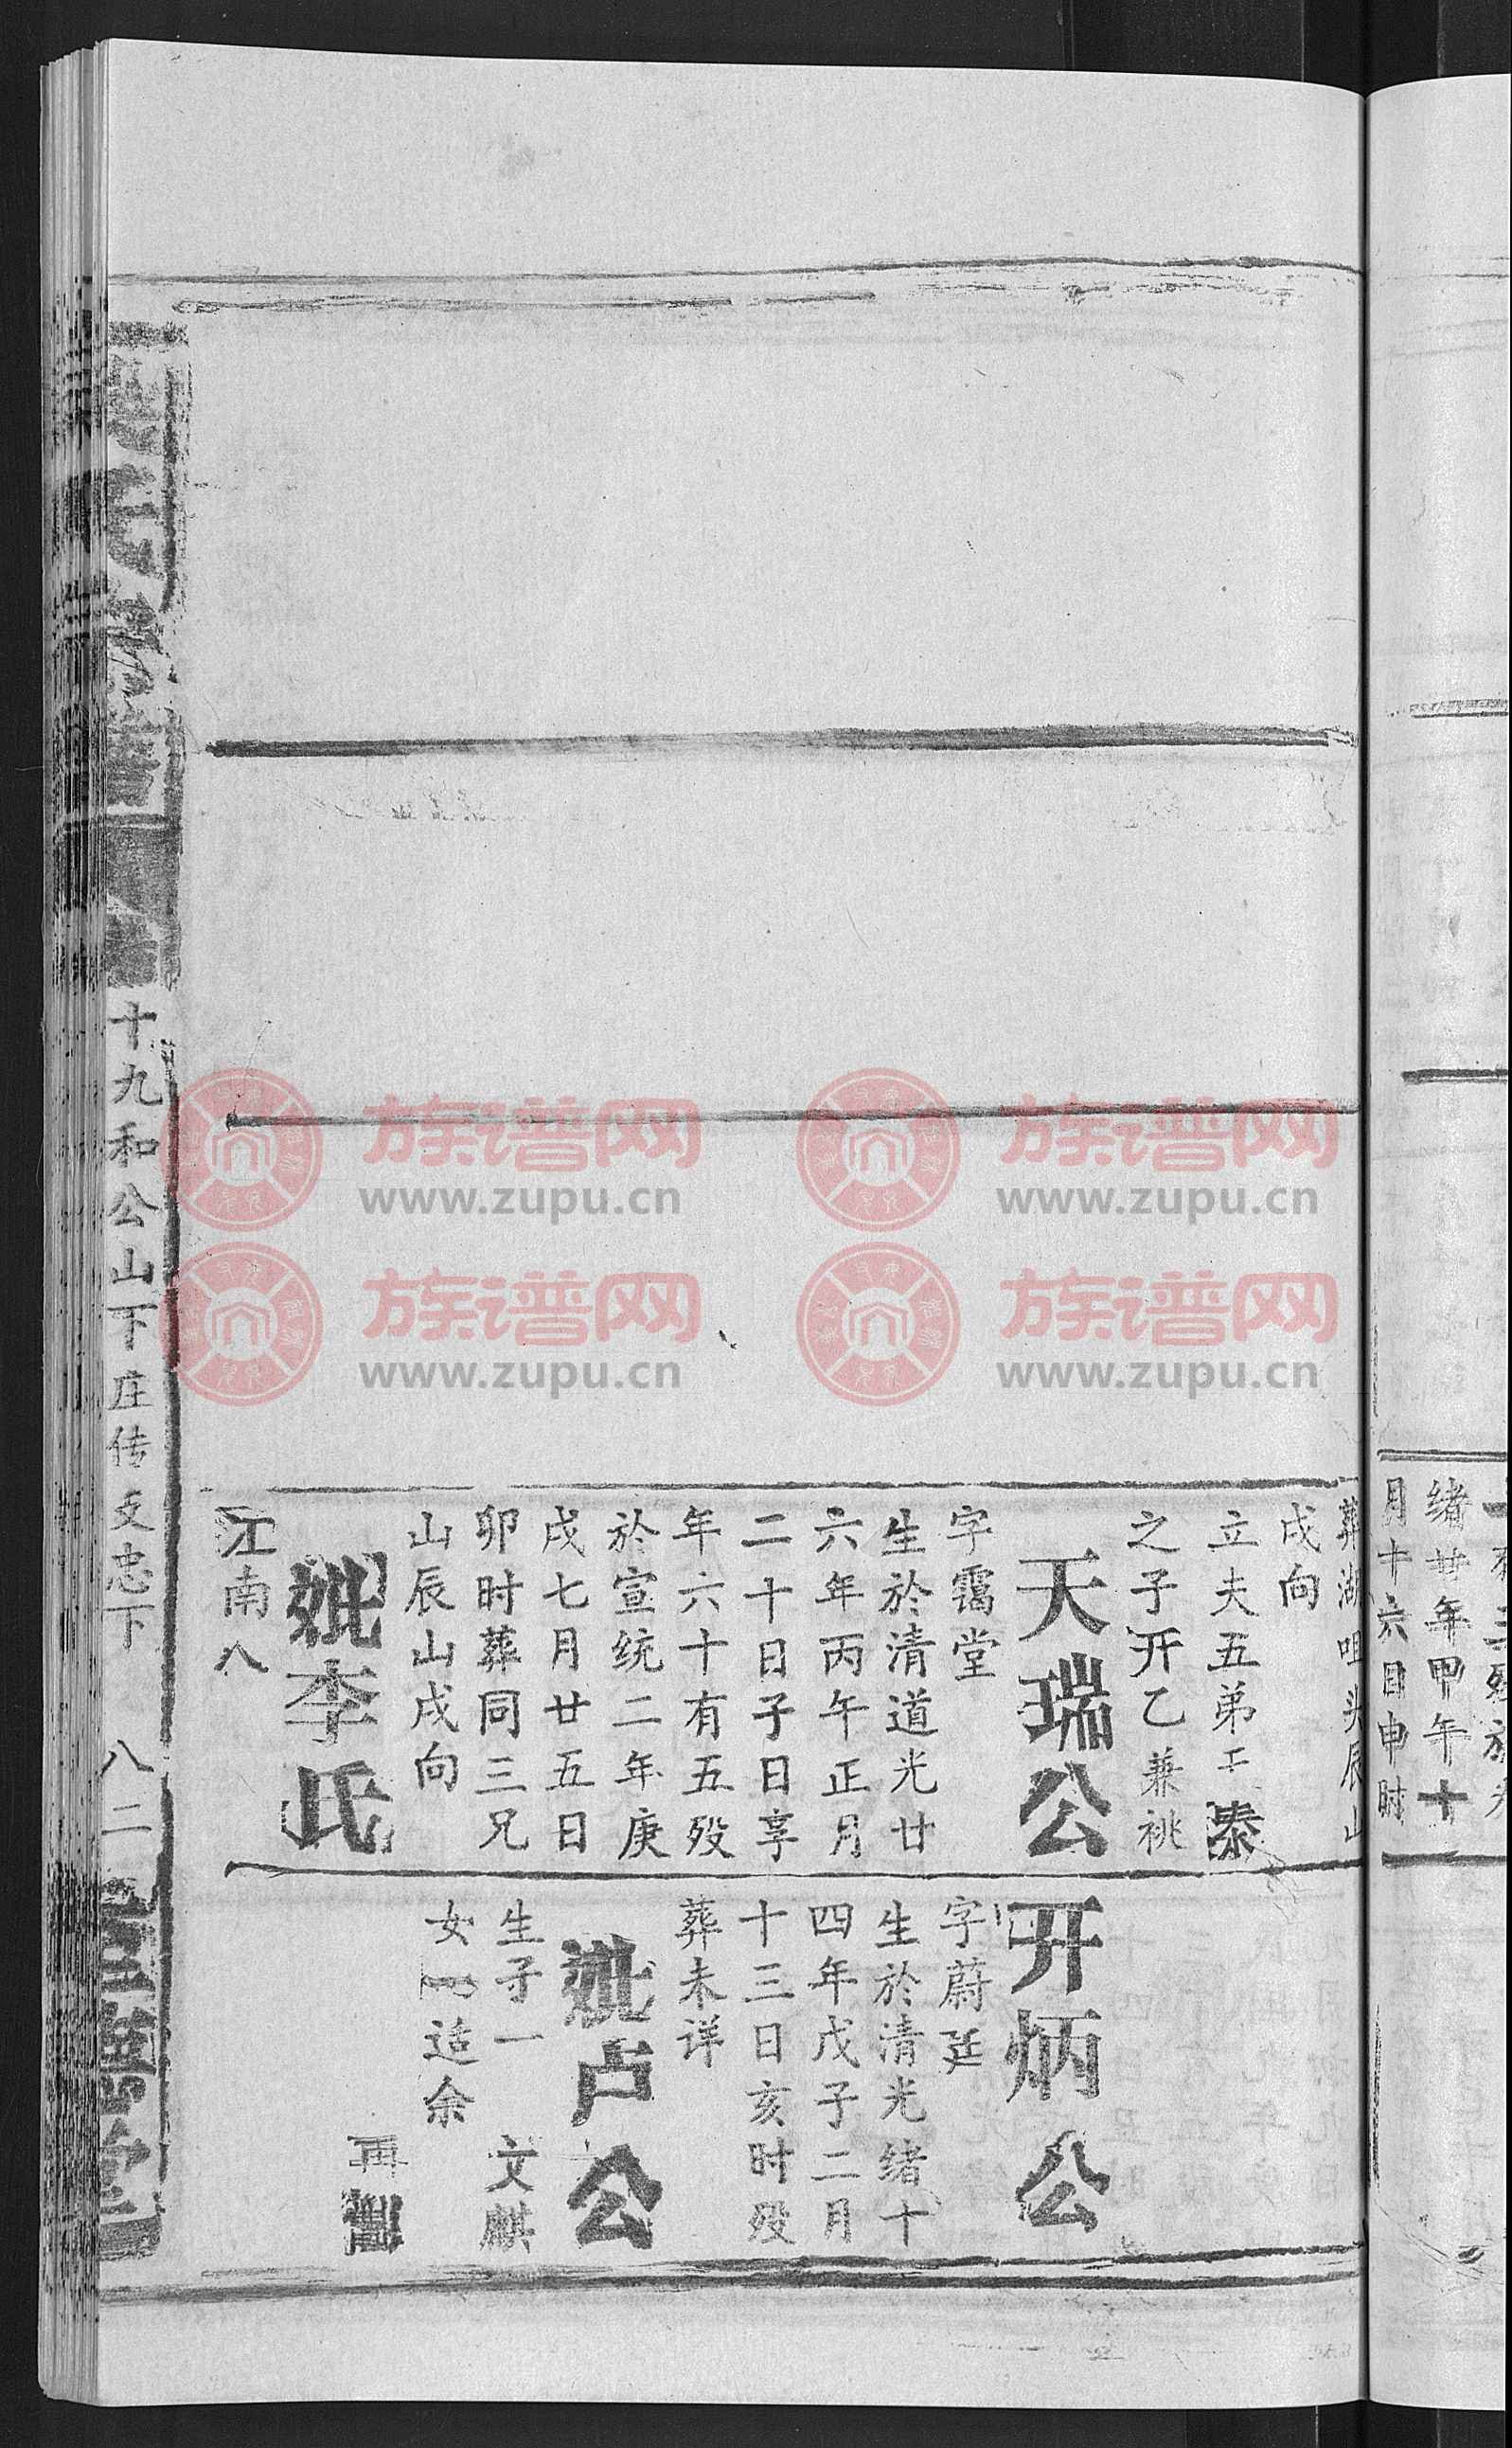 绪廿年甲午十
月十六日申时
葬湖咀头辰山
戌向
立夫五弟工泰
之子开乙兼祧
天瑞公
字霭堂
生於清道光廿
六年丙午正月
二十日子日享
年六十有五殁
於宣统二年庚
戌七月廿五日
卯时葬同三兄
山辰山戌向
妣李氏
江南八
开炳公
字蔚廷
生於清光绪十
四年戊子二月
十三日亥时殁
葬未详
妣卢公
生子一 文麒
女一适余
再
十九和公山下庄传文忠下 八二
族谱网
www.zupu.cn
族谱网
www.zupu.cn
族谱网
www.zupu.cn
族谱网
www.zupu.cn